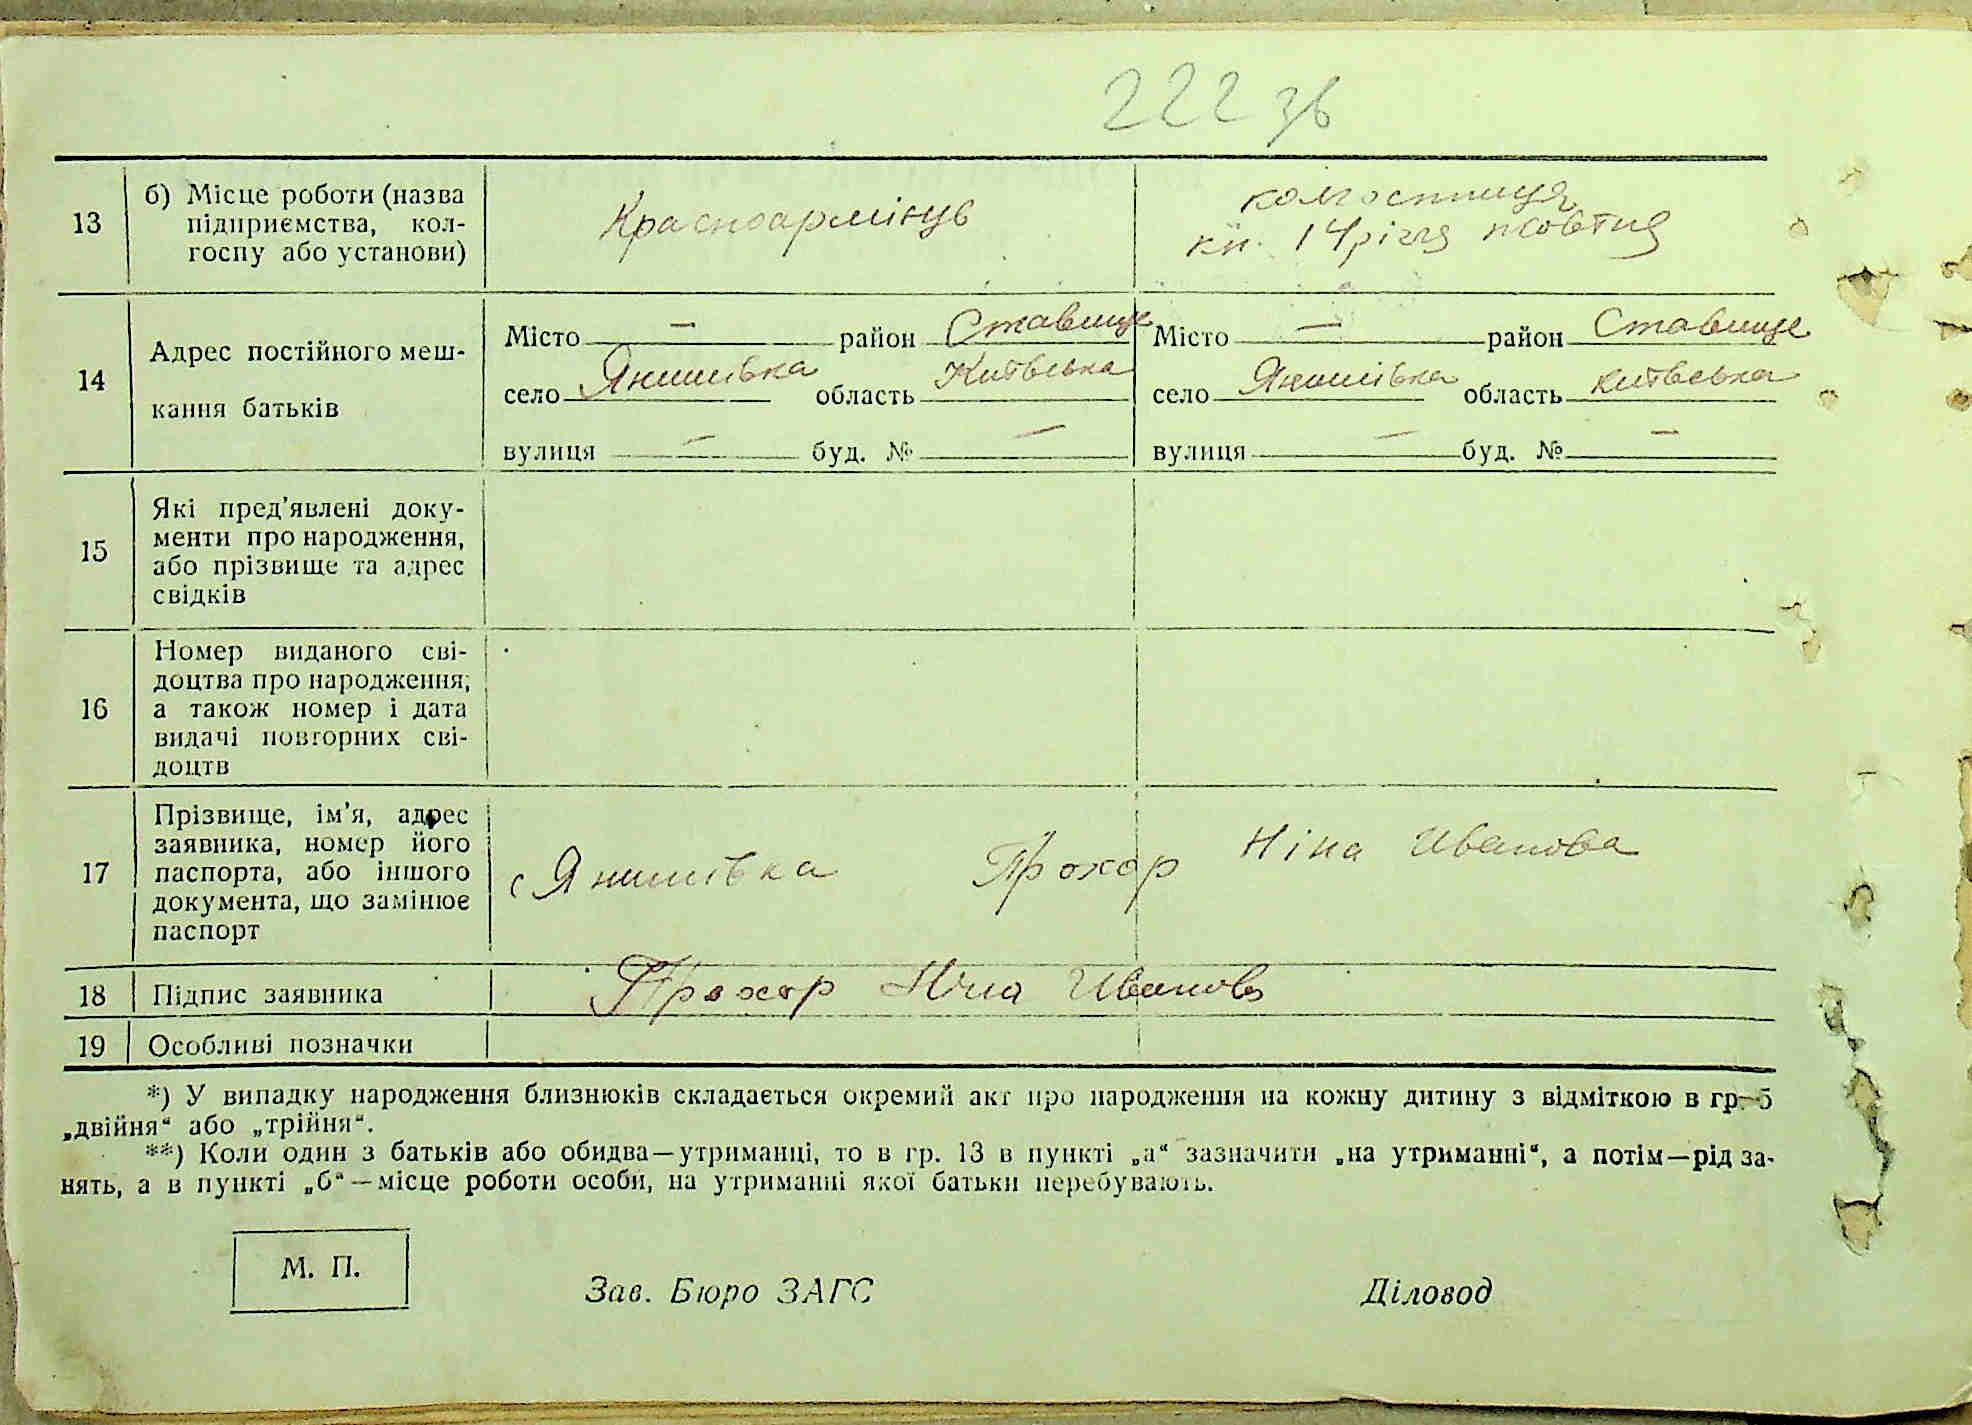 222 зв
13
б) Місце роботи (назва
підприємства, кол-
госпу або установи)
Красноармієць
колгоспниця
кп. 14річчя жовтня
14
Адрес постійного меш-
кання батьків
Місто — район Ставище
село Янишівка область Київська
вулиця — буд. № —
Місто — район Ставище
село Янишівка область київська
вулиця — буд. № —
15
Які пред'явлені доку-
менти про народження,
або прізвище та адрес
свідків
16
Номер виданого сві-
доцтва про народження,
а також номер і дата
видачі повторних сві-
доцтв
17
Прізвище, ім'я, адрес
заявника, номер його
паспорта, або іншого
документа, що замінює
паспорт
с Янишівка Прохор Ніна Иванова
18
Підпис заявника
Прохор Ніна Иванов
19
Особливі позначки
*) У випадку народження близнюків складається окремий акт про народження на кожну дитину з відміткою в гр. 5
„двійня“ або „трійня“.
**) Коли один з батьків або обидва—утриманці, то в гр. 13 в пункті „а“ зазначити „на утриманні“, а потім—рід за-
нять, а в пункті „б“—місце роботи особи, на утриманні якої батьки перебувають.
М. П.
Зав. Бюро ЗАГС
Діловод